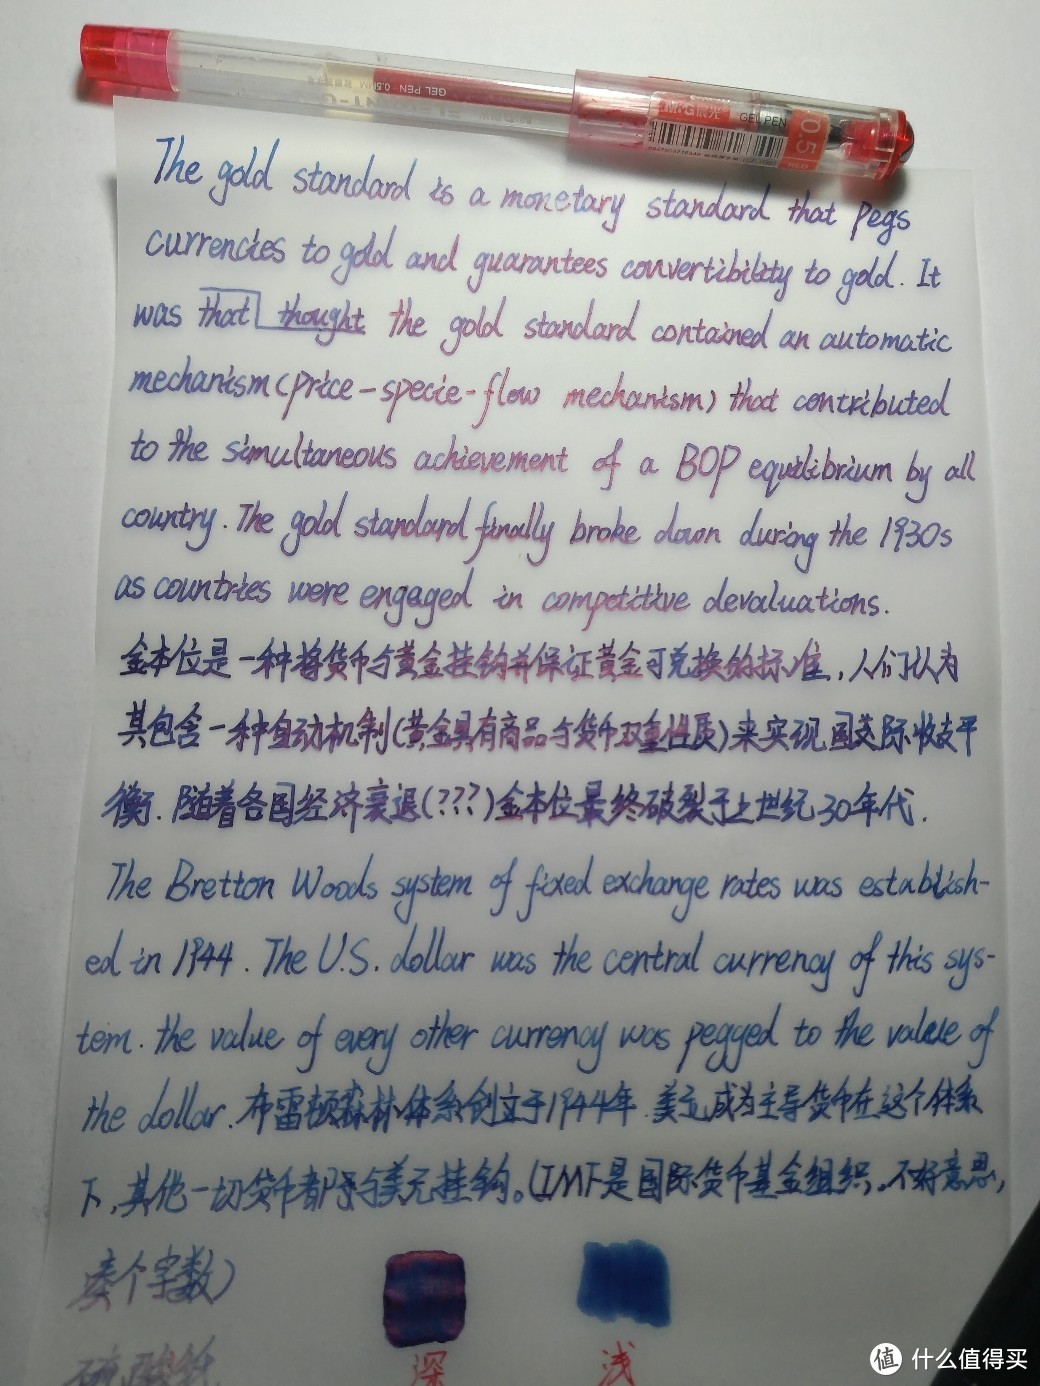 GEL PEN 0.5MM
M&G晨光 GEL PEN 0.5
The gold standard is a monetary standard that pegs
currencies to gold and guarantees convertibility to gold. It
was that thought the gold standard contained an automatic
mechanism(price-specie-flow mechanism) that contributed
to the simultaneous achievement of a BOP equilibrium by all
country. The gold standard finally broke down during the 1930s
as countries were engaged in competitive devaluations.
金本位是一种将货币与黄金挂钩并保证黄金可兑换的标准,人们认为
其包含一种自动机制(黄金具有商品与货币双重性质)来实现国际收支平
衡.随着各国经济衰退(???)金本位最终破裂于上世纪30年代.
The Bretton Woods system of fixed exchange rates was establish-
ed in 1944. The U.S. dollar was the central currency of this sys-
tem. the value of every other currency was pegged to the value of
the dollar.布雷顿森林体系创立于1944年.美元成为主导货币在这个体系
下,其他一切货币都与美元挂钩。(IMF是国际货币基金组织。不好意思,
凑个字数)
硫酸纸
深 浅
值 什么值得买